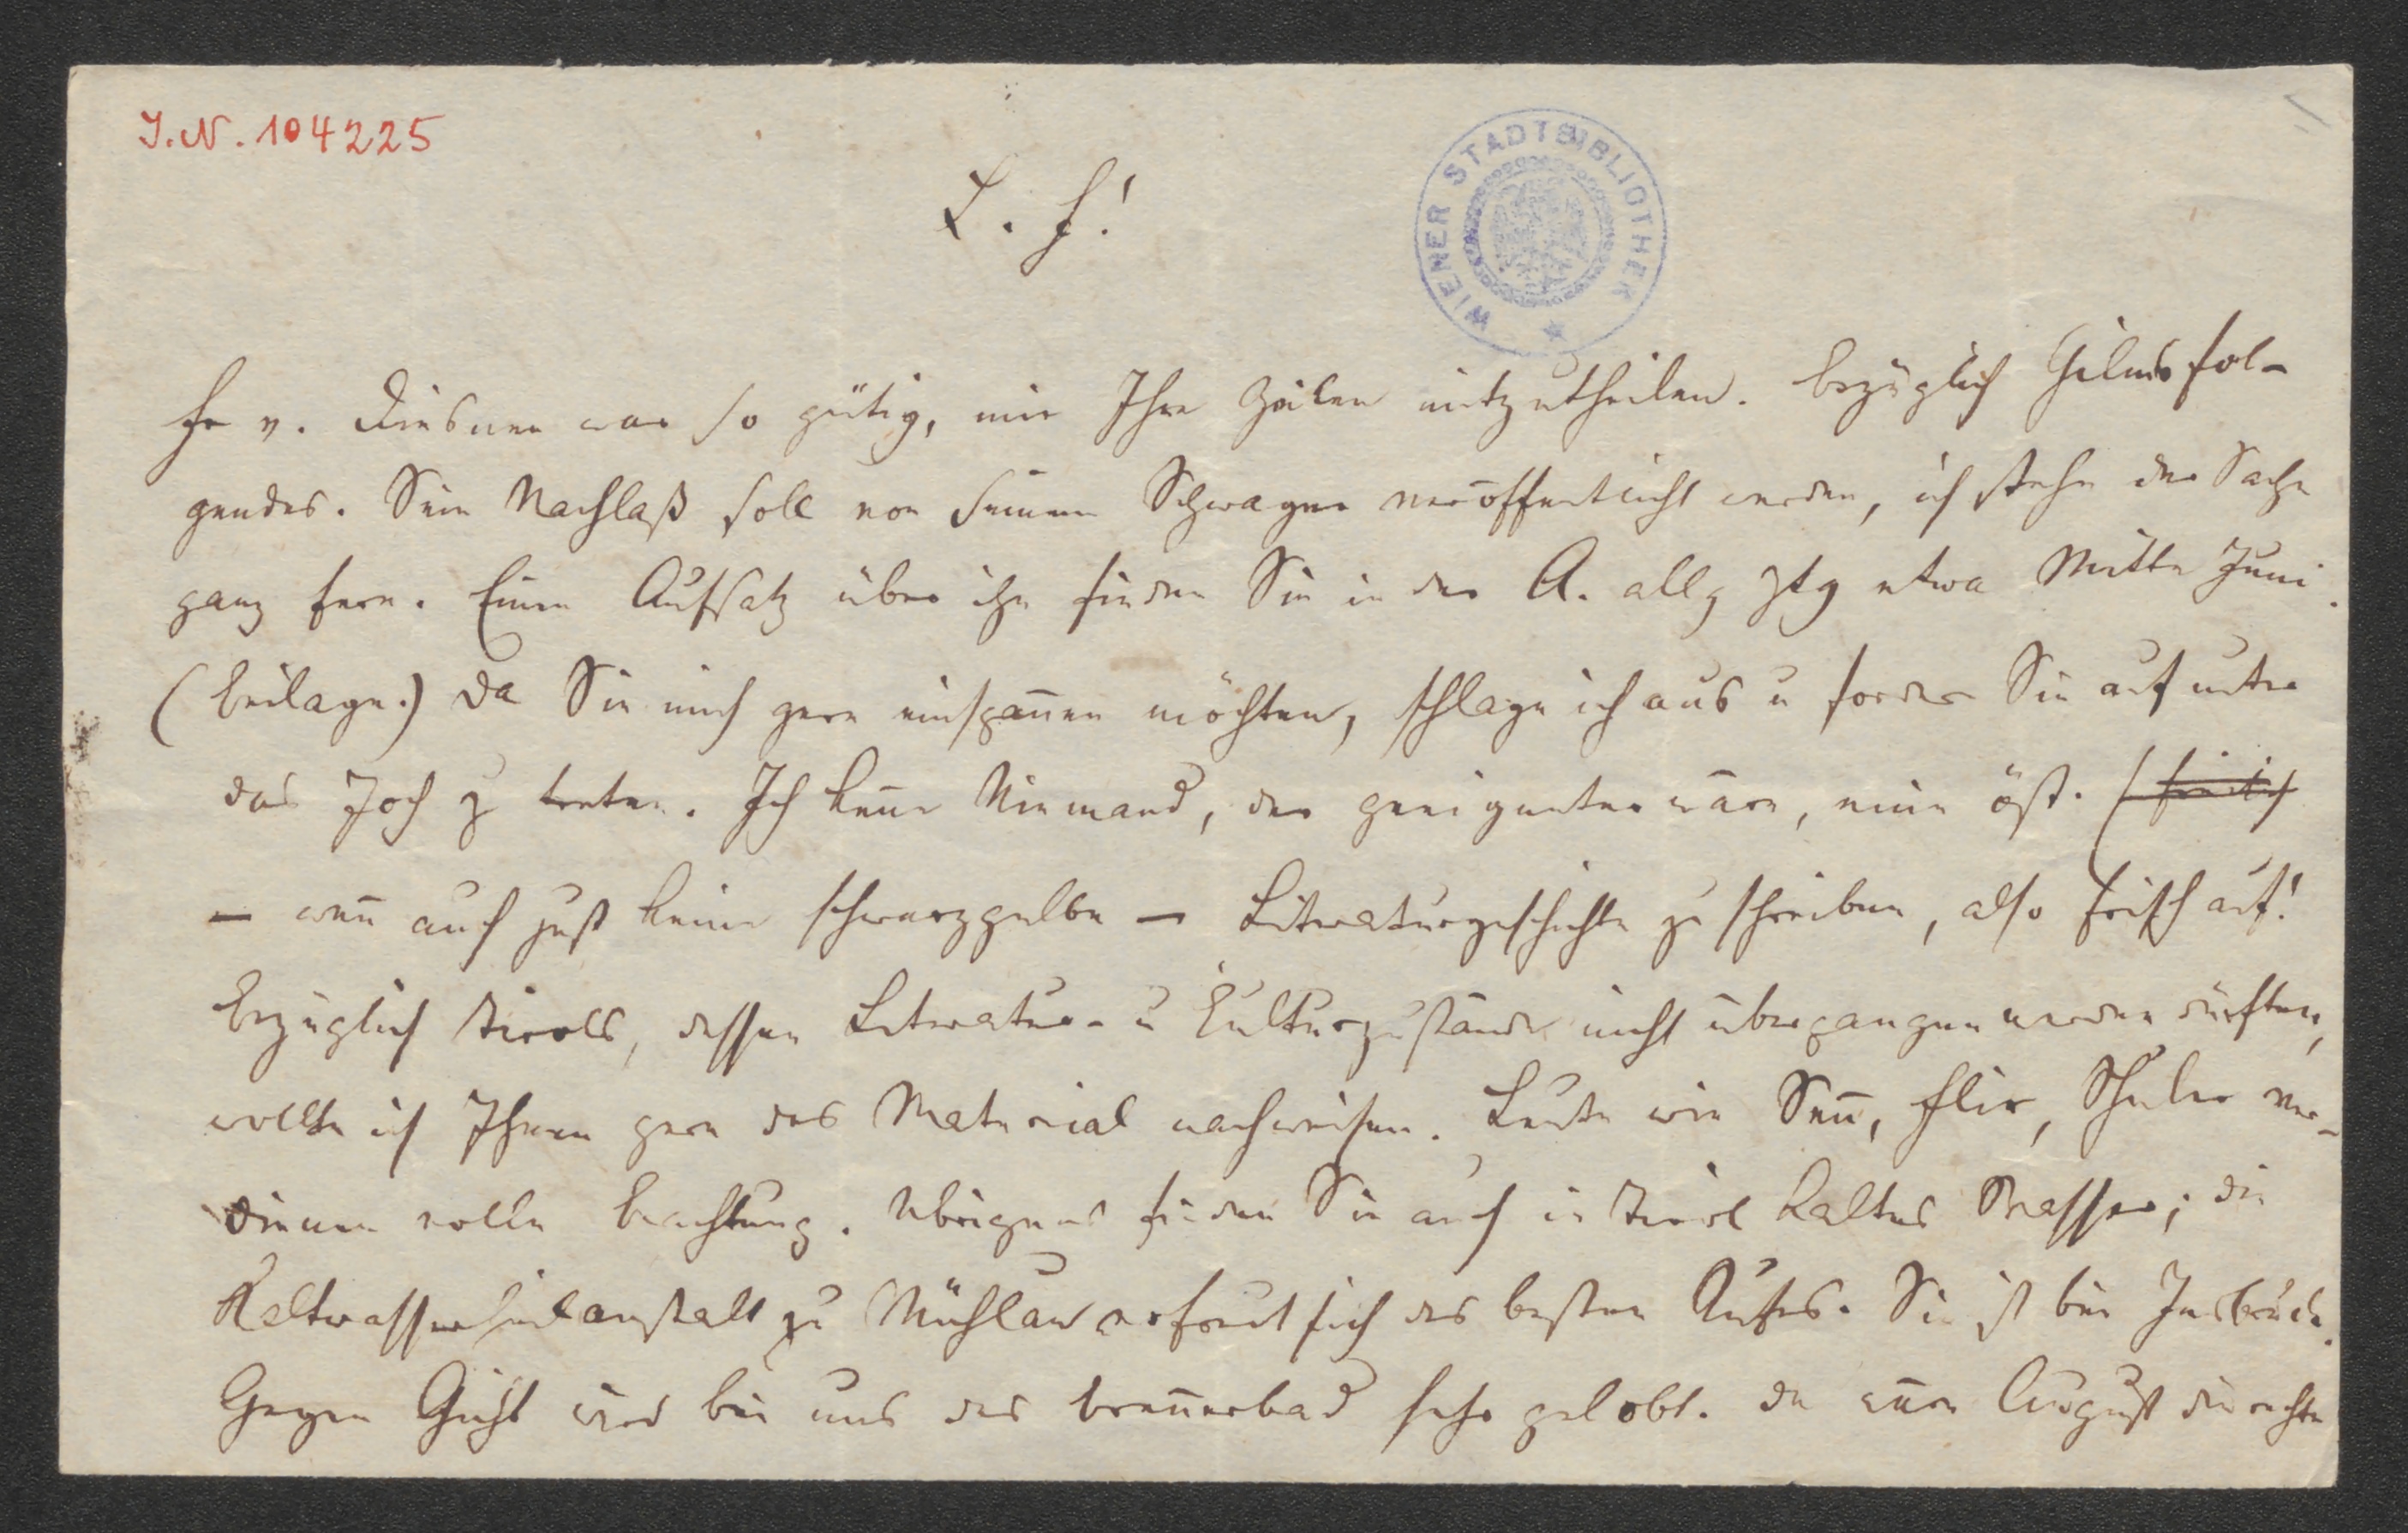 I.N. 104225
WIENER STADTBIBLIOTHEK
L. F!
Hr v. war so gütig, mir Ihre Zeilen mitzutheilen. Bezüglich Gilms fol-
gendes. Sein Nachlaß soll von seinem Schwager veröffentlicht werden, ich stehe der Sache
ganz fern. Einen Aufsatz über ihn finden Sie in der A. allg Ztg etwa Mitte Juni.
(Beilage.) Da Sie mich gern einspan̄en möchten, schlage ich aus u fordere Sie auf unter
das Joch z treten. Ich ken̄e Niemand, der geeigneter wäre, eine öst. (freilich
– wen̄ auch just keine schwarzgelbe – Literaturgeschichte zu schreiben, also frisch auf!
Bezüglich Tirols, dessen Literatur- u Culturzustände nicht übergangen werden dürften,
wollte ich Ihnen gern das Material nachweisen. Leute wie Sen̄, Flir, Schuler ver-
dienen volle Beachtung. Übrigens finden Sie auch in Tirol kaltes Wasser; die
Kaltwasserheilanstalt zu Mühlau erfreut sich des besten Rufes. Sie ist bei Insbruck.
Gegen Gicht wird bei uns das Bren̄erbad sehr gelobt. Da wäre August die rechte